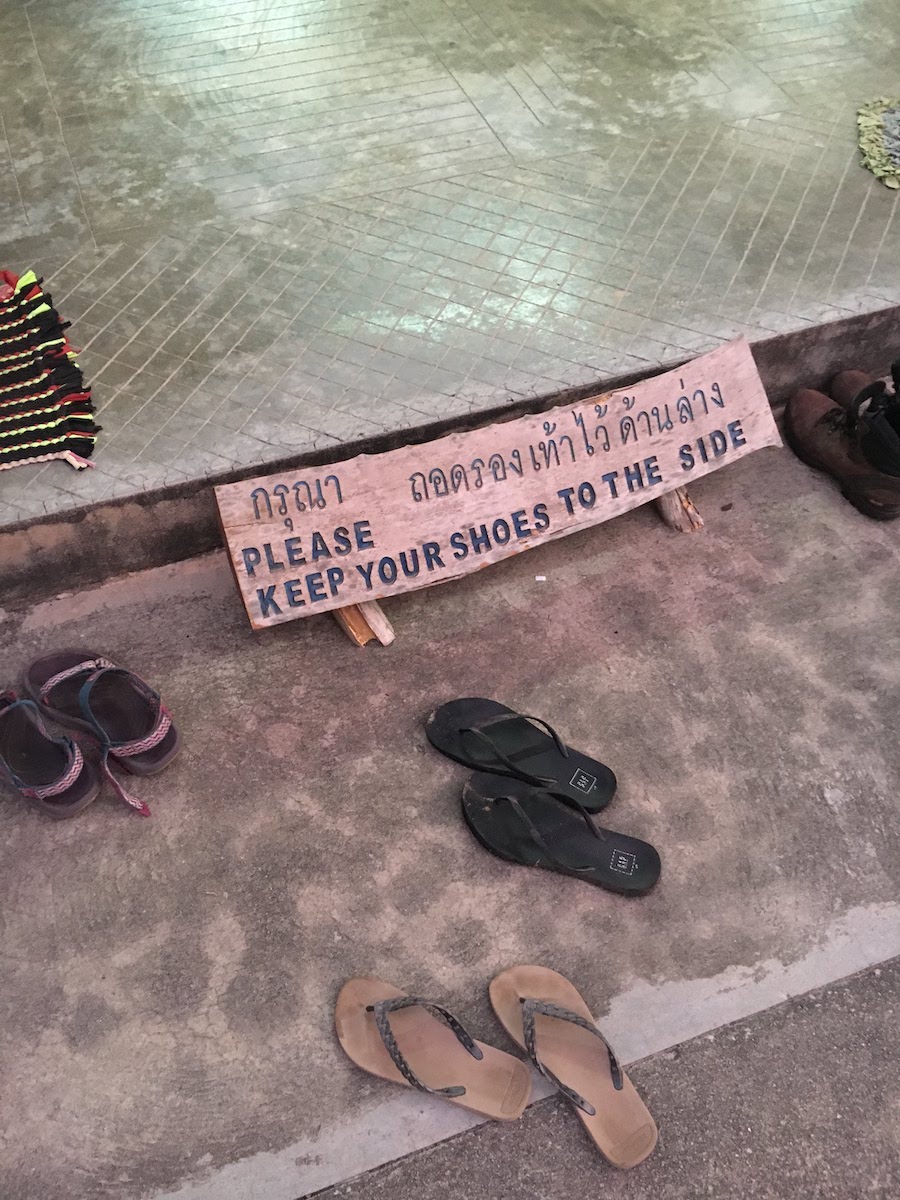 กรุณา ถอดรองเท้าไว้ ด้านล่าง
PLEASE
KEEP YOUR SHOES TO THE SIDE
GAP
GAP